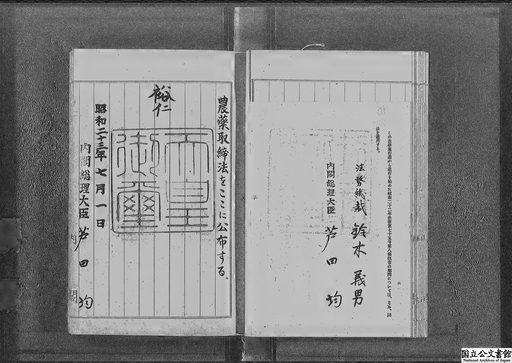 法務総裁 鈴木義男
内閣総理大臣 芦田均
農薬取締法をここに公布する。
裕仁
天皇
御璽
昭和二十三年七月一日
内閣総理大臣 芦田均
国立公文書館
National Archives of Japan